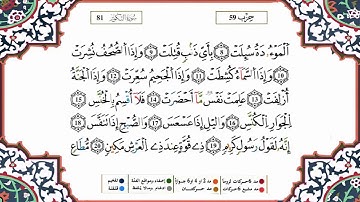 سورة التكوير 81
حزب 59
الْمَوْءُۥدَةُ سُئِلَتْ ۝8 بِأَيِّ ذَنۢبٍ قُتِلَتْ ۝9 وَإِذَا الصُّحُفُ نُشِرَتْ
۝10 وَإِذَا السَّمَآءُ كُشِطَتْ ۝11 وَإِذَا الْجَحِيمُ سُعِّرَتْ ۝12 وَإِذَا الْجَنَّةُ
أُزْلِفَتْ ۝13 عَلِمَتْ نَفْسٌ مَّآ أَحْضَرَتْ ۝14 فَلَآ أُقْسِمُ بِالْخُنَّسِ ۝15
الْجَوَارِ الْكُنَّسِ ۝16 وَالَّيْلِ إِذَا عَسْعَسَ ۝17 وَالصُّبْحِ إِذَا تَنَفَّسَ ۝18
إِنَّهُۥ لَقَوْلُ رَسُولٍ كَرِيمٍ ۝19 ذِي قُوَّةٍ عِندَ ذِي الْعَرْشِ مَكِينٍ ۝20 مُّطَاعٍ